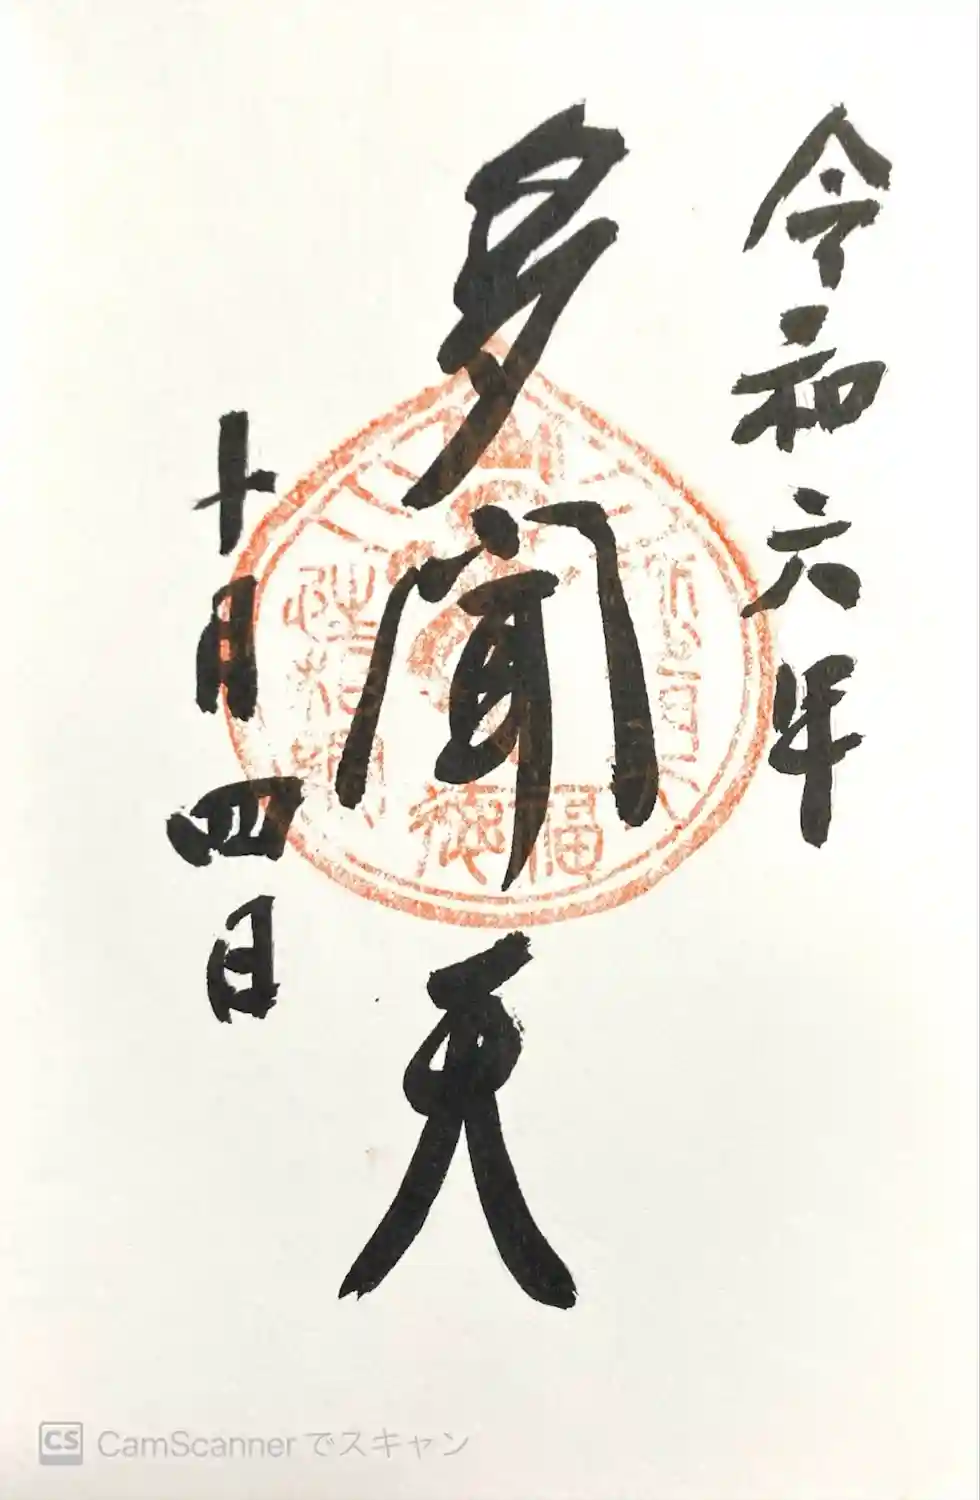 令和六年
多聞天
十月四日
福徳
CS CamScanner でスキャン